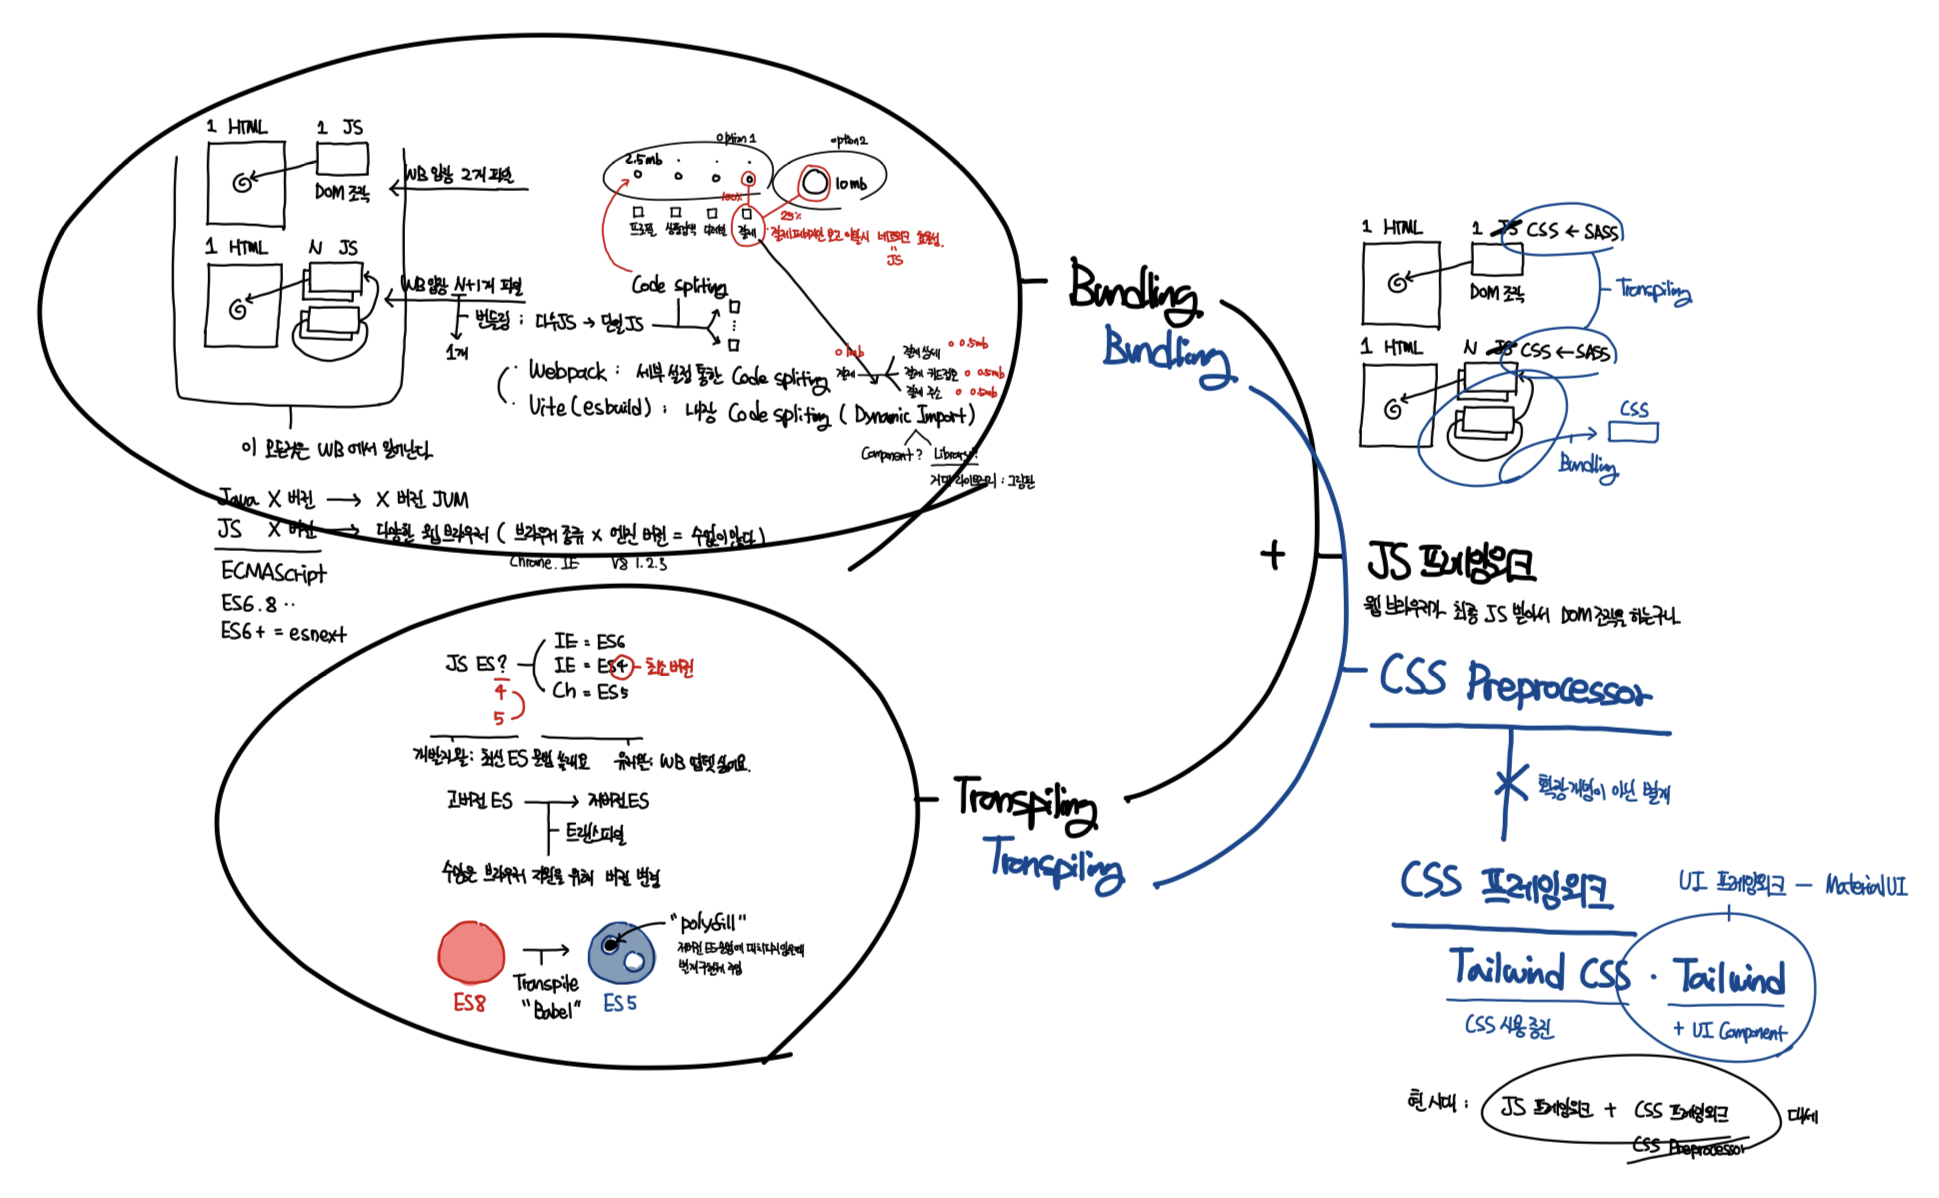 1 HTML
1 JS
DOM 조작
WB 입장 2개 파일
1 HTML
N JS
WB 입장 N+1개 파일
1개
번들링 : 다수JS → 단일JS
이 모든것은 WB 에서 일어난다
option 1
option 2
2.5mb
10mb
100%
25%
프로필
상품검색
디테일
결제
결제페이지만 보고 이탈시 네트워크 효율성.
JS
Code spliting
Webpack : 세부 설정 통한 Code spliting
Vite (esbuild) : 내장 Code spliting ( Dynamic Import )
1mb
결제
결제 상세
0.5mb
결제 카드정보
0.5mb
결제 주소
0.5mb
Component?
Library?
거대 라이브러리 : 그림판
Java X 버전 → X 버전 JVM
JS X 버전 → 다양한 웹 브라우저 ( 브라우저 종류 x 엔진 버전 = 수없이 많다 )
Chrome. IE
V8 1.2.3
ECMAScript
ES6.8 ..
ES6+ = esnext
JS ES?
4
5
IE = ES6
IE = ES4 - 최소버전
Ch = ES5
개발자 왈 : 최신 ES 문법 쓸래요
유저왈 : WB 업뎃 싫어요.
고버전 ES → 저버전 ES
트랜스파일
수많은 브라우저 지원을 위해 버전 변환
"polyfill"
ES8
Transpile
"Babel"
ES5
Bundling
Bundling
Transpiling
Transpiling
+
1 HTML
1 JS CSS ← SASS
DOM 조작
Transpiling
1 HTML
N JS CSS ← SASS
CSS
Bundling
JS 프레임워크
웹 브라우저가 최종 JS 받아서 DOM 조작을 하는구나
CSS Preprocessor
확장 개념이 아닌 별개
CSS 프레임워크
UI 프레임워크 — Material UI
Tailwind CSS · Tailwind
CSS 사용 증진
+ UI Component
현 시대 : JS 프레임워크 + CSS 프레임워크 대세
CSS Preprocessor